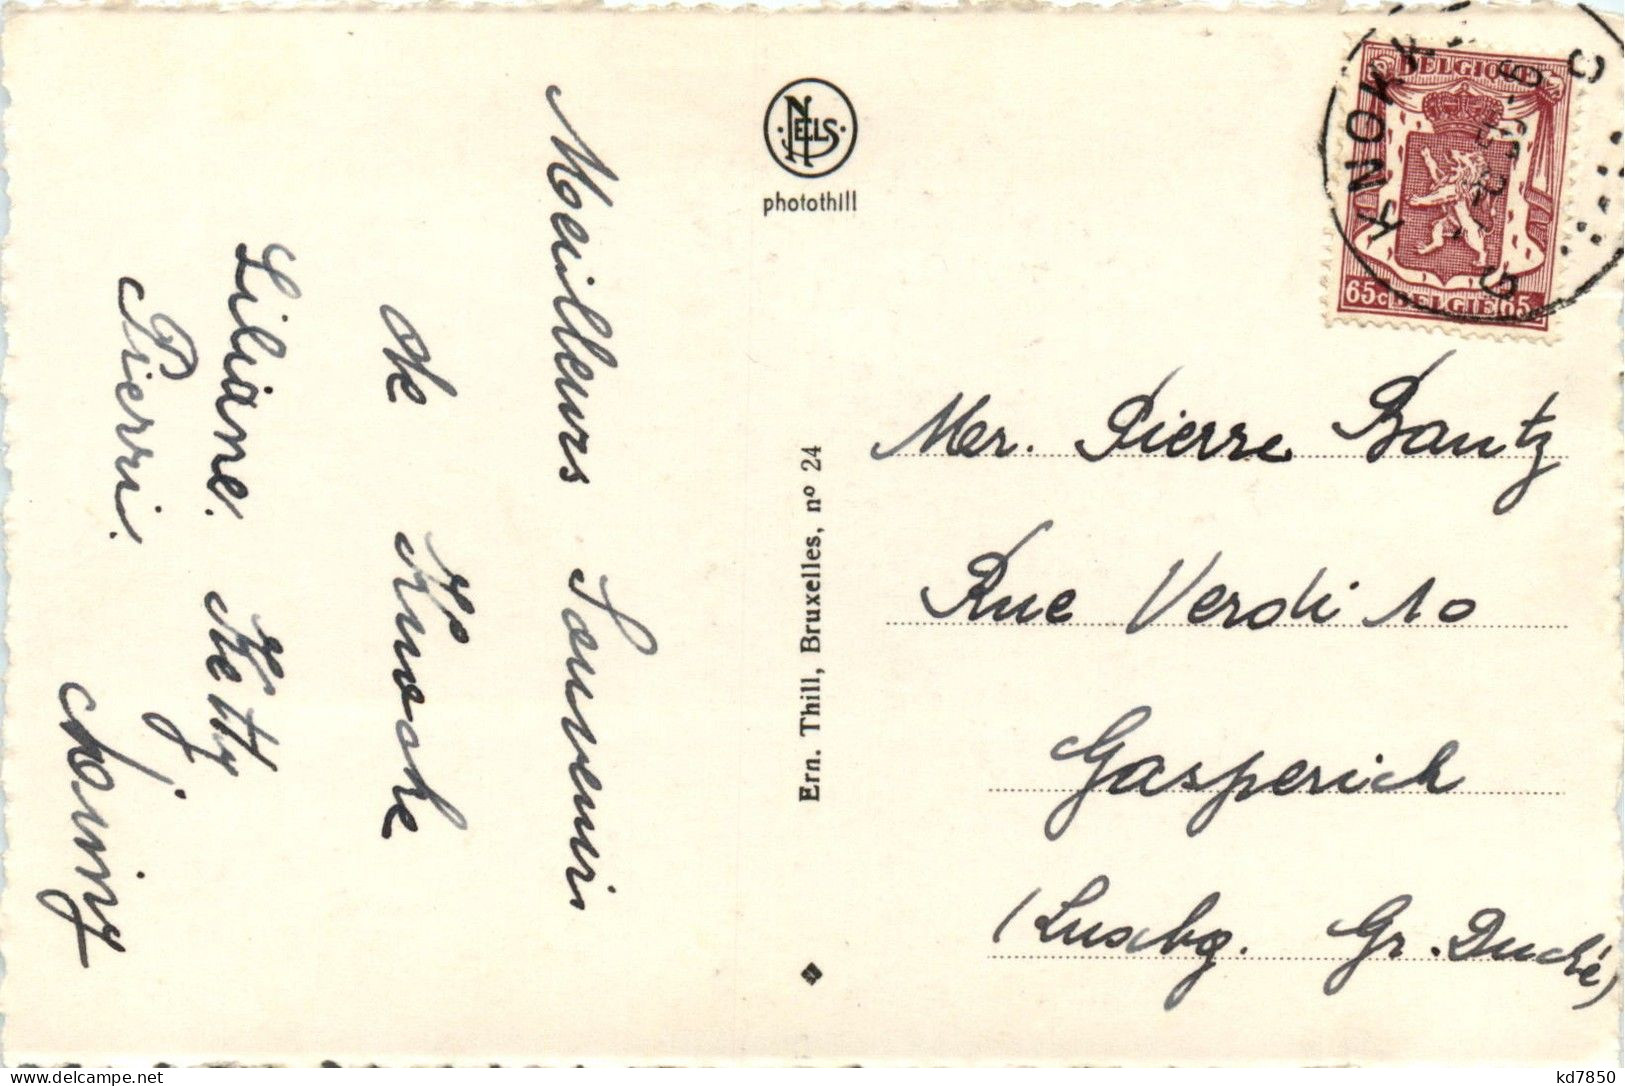 Meilleurs Souvenirs
de Knocke
Liliane. Ketty
Pierri.
NELS
photothill
Ern. Thill, Bruxelles, nº 24
KNOKK
BELGIQUE
65c BELGIE 65c
Mer. Pierre Bantz
Rue Verdi 10
Gasperich
(Luxbg. Gr. Duché)
delcampe.net
kd7850